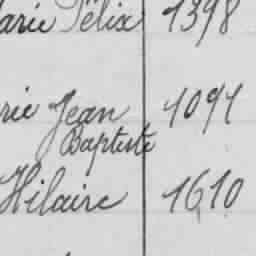 arie Félix 1398
rie Jean 1091
Baptiste
Hilaire 1610